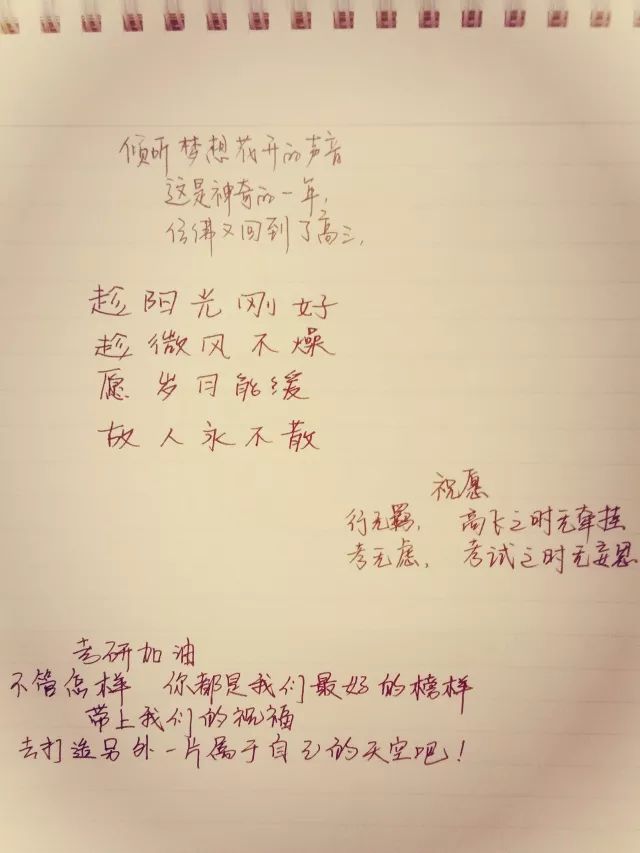 倾听梦想花开的声音
这是神奇的一年,
仿佛又回到了高三,
趁阳光刚好
趁微风不燥
愿岁月能缓
故人永不散
祝愿
行无羁, 高飞之时无牵挂
考无虑, 考试之时无妄思
考研加油
不管怎样 你都是我们最好的榜样
带上我们的祝福
去打造另外一片属于自己的天空吧!